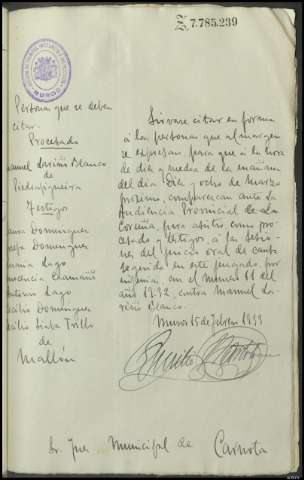 7.785.239
Personas que se deben
citar.
Procesado
Manuel Lariño Blanco
de
Piedrafigueira
Testigos
Dominguez
Dominguez
Lago
Lago
Dominguez
Trillo
de
Mallón
Sírvase citar en forma
á las personas que al margen
se expresan, para que á la hora
de diez y media de la mañana
del día diez y ocho de Marzo
próximo, comparezcan ante la
Audiencia Provincial de La
Coruña, para asistir, como pro-
cesado y testigos, á las sesio-
nes del juicio oral de causa
seguida en este juzgado, por
injurias, con el número 66 del
año 1932, contra Manuel La-
riño Blanco.
Muros 15 de Febrero 1933
Sr. Juez Municipal de Carnota